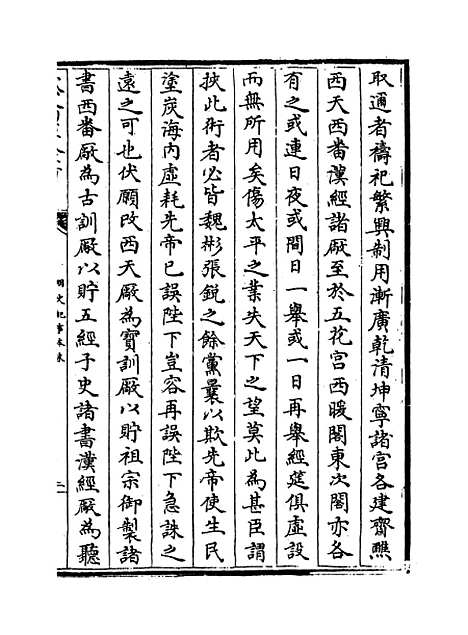 取逋者禱祀繁興制用漸廣乾清坤寧諸宮各建齋醮
西天西番漢經諸厰至於五花宮西暖閣東次閣亦各
有之或連日夜或間日一舉或一日再舉經筵俱虛設
而無所用矣傷太平之業失天下之望莫此為甚臣謂
挾此術者必皆魏彬張鋭之餘黨曩以欺先帝使生民
塗炭海内虚耗先帝已誤陛下豈容再誤陛下急誅之
遠之可也伏願改西天厰為寶訓厰以貯祖宗御製諸
書西番厰為古訓厰以貯五經子史諸書漢經厰為聽
明史紀事本末
二